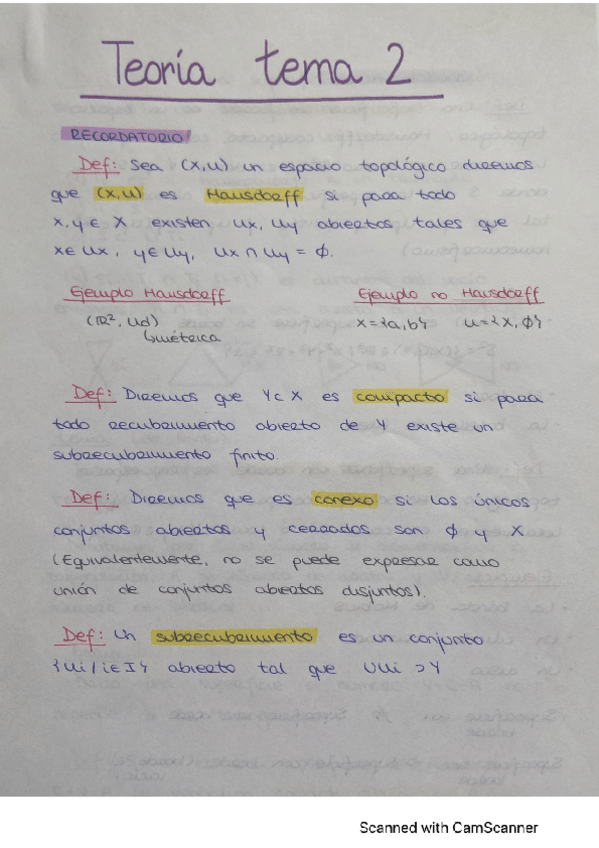 Teoría tema 2
RECORDATORIO
Def: Sea (X,U) un espacio topológico diremos
que (X,U) es Hausdorff si para todo
x,y ∈ X existen Ux, Uy abiertos tales que
x∈Ux, y∈Uy, Ux ∩ Uy = ∅.
Ejemplo Hausdorff Ejemplo no Hausdorff
(ℝ², Ud) X={a,b} U={X, ∅}
↳métrica
Def: Diremos que Y⊂X es compacto si para
todo recubrimiento abierto de Y existe un
subrecubrimiento finito.
Def: Diremos que es conexo si los únicos
conjuntos abiertos y cerrados son ∅ y X
(Equivalentemente, no se puede expresar como
unión de conjuntos abiertos disjuntos).
Def: Un subrecubrimiento es un conjunto
{Ui / i∈I} abierto tal que UUi ⊃Y
Scanned with CamScanner